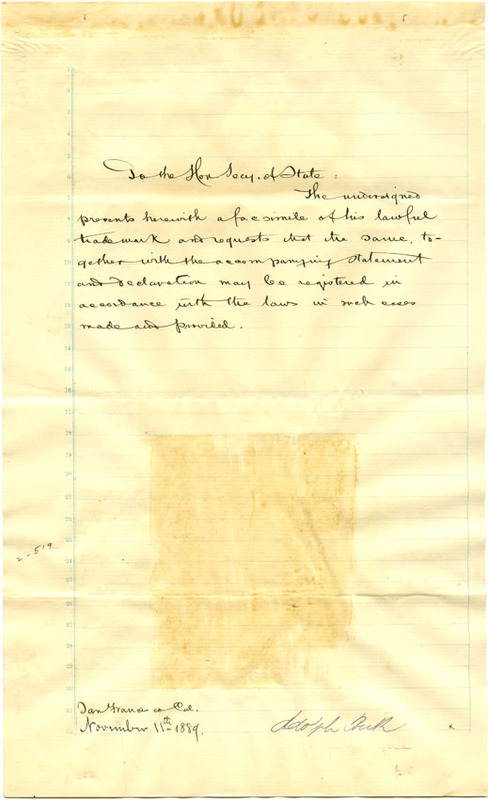 To the Hon Secy. of State:
The undersigned
presents herewith a facsimile of his lawful
trademark and requests that the same, to-
gether with the accompanying statement
and declaration may be registered in
accordance with the laws in such cases
made and provided.
2-519
San Francisco Cal.
November 11th 1889.
Adolph